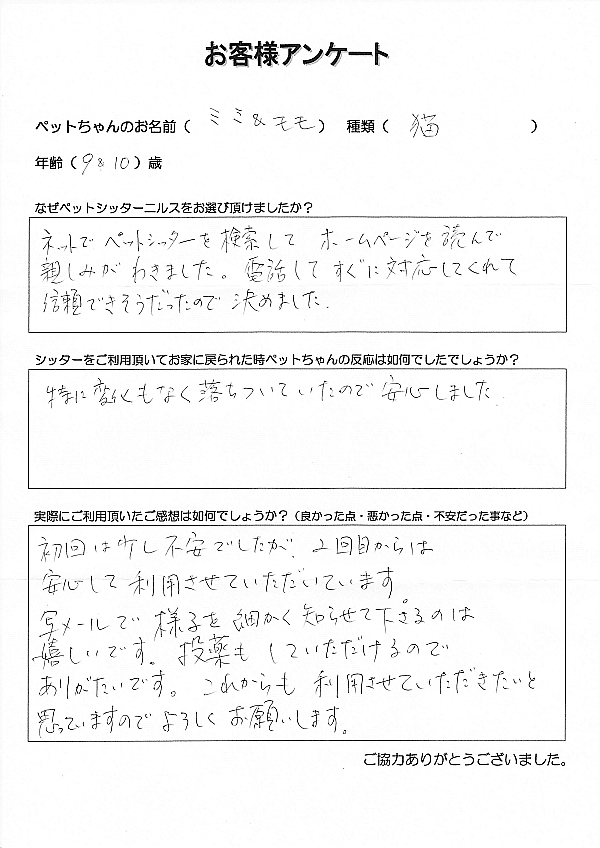 お客様アンケート
ペットちゃんのお名前（ ミミ&モモ） 種類（ 猫 ）
年齢（9&10）歳
なぜペットシッターニルスをお選び頂けましたか？
ネットでペットシッターを検索して ホームページを読んで
親しみがわきました。電話してすぐに対応してくれて
信頼できそうだったので決めました.
シッターをご利用頂いてお家に戻られた時ペットちゃんの反応は如何でしたでしょうか？
特に変化もなく落ちついていたので安心しました.
実際にご利用頂いたご感想は如何でしょうか？（良かった点・悪かった点・不安だった事など）
初回は少し不安でしたが、2回目からは
安心して利用させていただいています。
写メールで様子を細かく知らせて下さるのは
嬉しいです。投薬もしていただけるので
ありがたいです。これからも利用させていただきたいと
思っていますのでよろしくお願いします。
ご協力ありがとうございました。